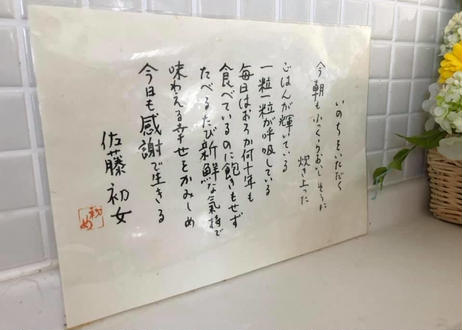 いのちをいただく
今朝も ふっくらおいしそうに
炊き上った
ごはんが輝いている
一粒一粒が呼吸している
毎日はおろか何十年も
食べているのに飽きもせず
たべるたび新鮮な気持で
味わえる幸せをかみしめ
今日も感謝で生きる
佐藤初女